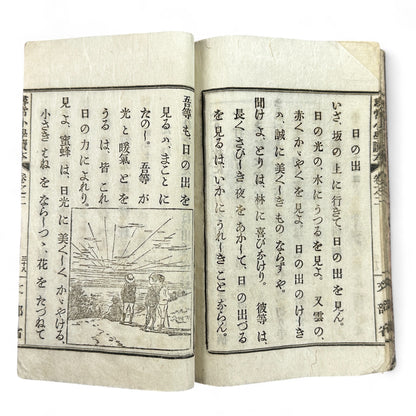 日の出
いざ、坂の上に行きて、日の出を見ん。
日の光の水にうつるを見よ。又雲の、
赤くかゞやくを見よ。日の出のけしき
ハ、誠に美くしきものならずや。
聞けよ、とりは、林に喜びなけり。彼等は、
長く、さびしき夜をあかして、日の出づる
を見るは、いかにうれしきことならん。
吾等も、日の出を
見るハ、まことに
たのし。吾等が
光と暖氣とを
うるは、皆これ
日の力によれり。
見よ、蜜蜂は、日光に美くしくかゞやける、
小さきはねをならしつゝ、花をたづねて
尋常小學讀本 卷之二